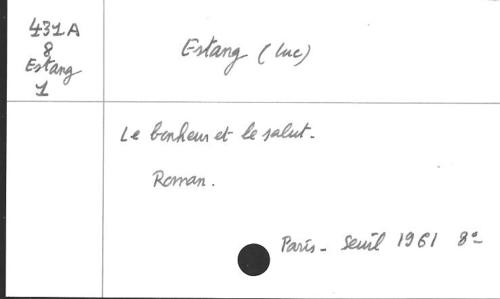 431A
8
Estang
1
Estang (Luc)
Le bonheur et le salut.
Roman.
Paris - Seuil 1961 8°